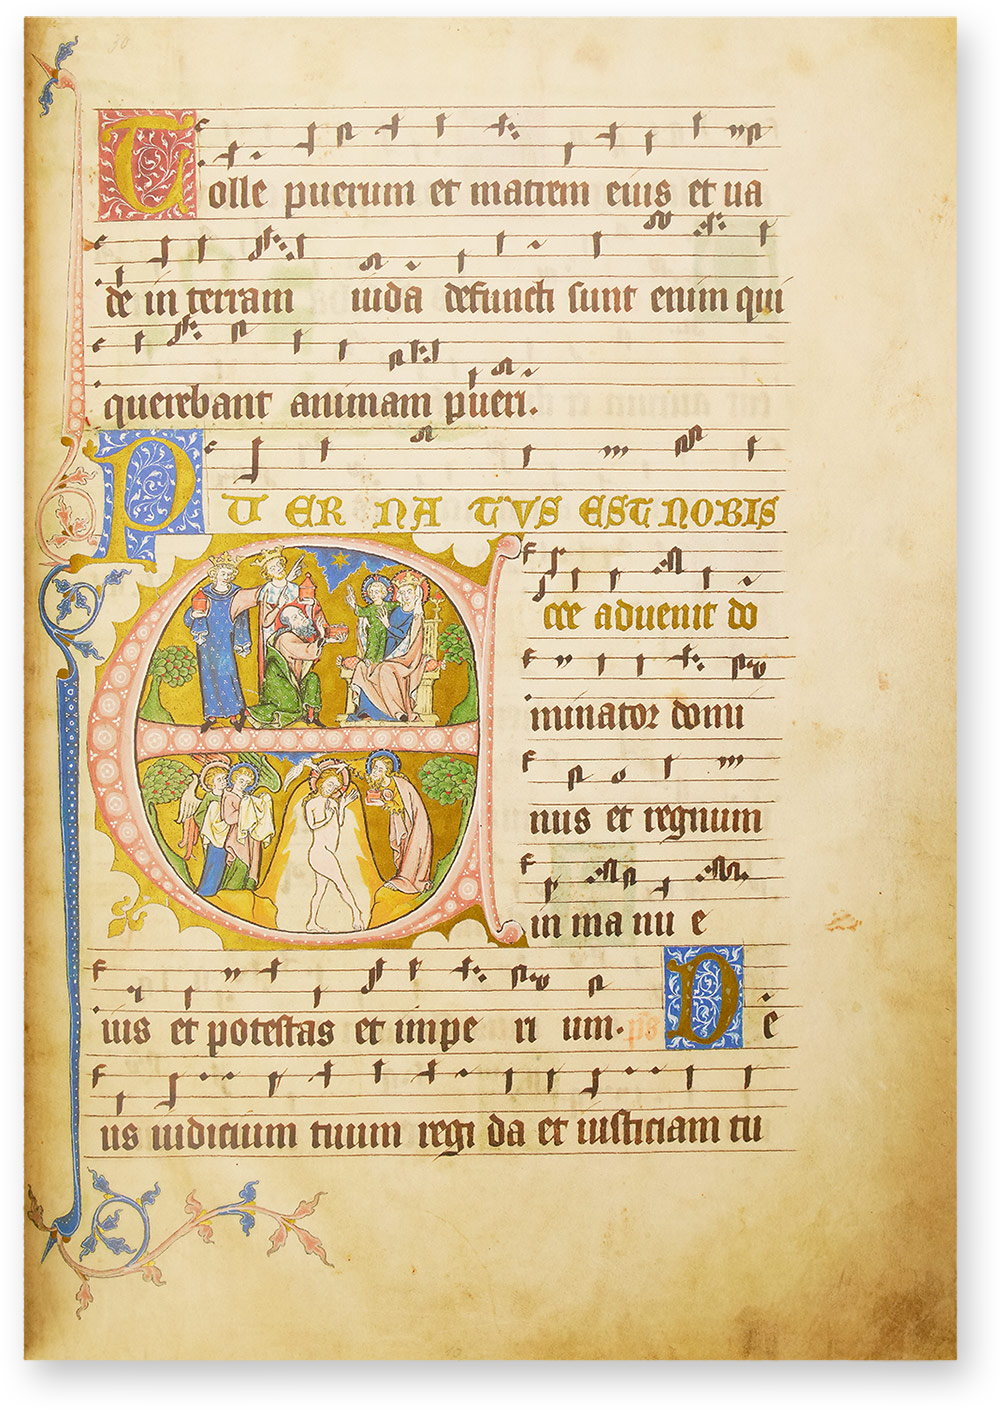 Tolle puerum et matrem eius et ua
de in terram iuda defuncti sunt enim qui
querebant animam pueri.
PUER NATVS EST NOBIS
Ecce aduenit do
minator domi
nus et regnum
in ma nu e
ius et potestas et impe ri um. ps De
us iudicium tuum regi da et iusticiam tu